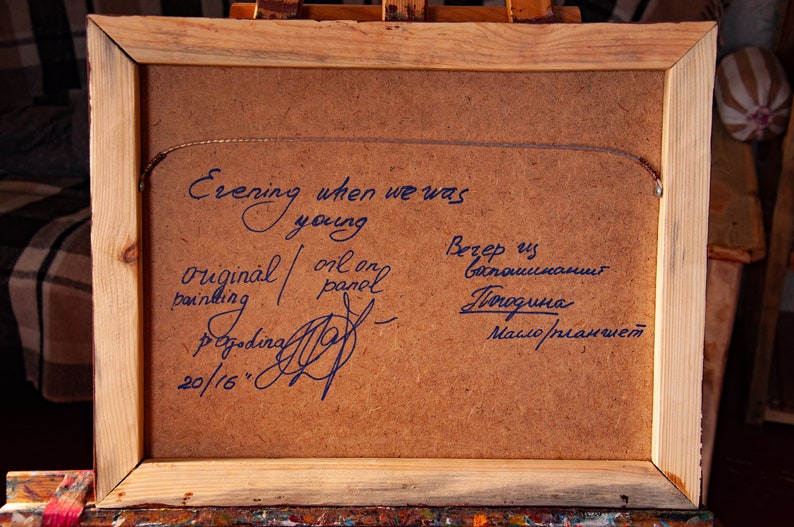 Evening when we was
young
original / oil on
painting panel
pogodina
20/16"
Вечер из
воспоминаний
Погодина
Масло/планшет